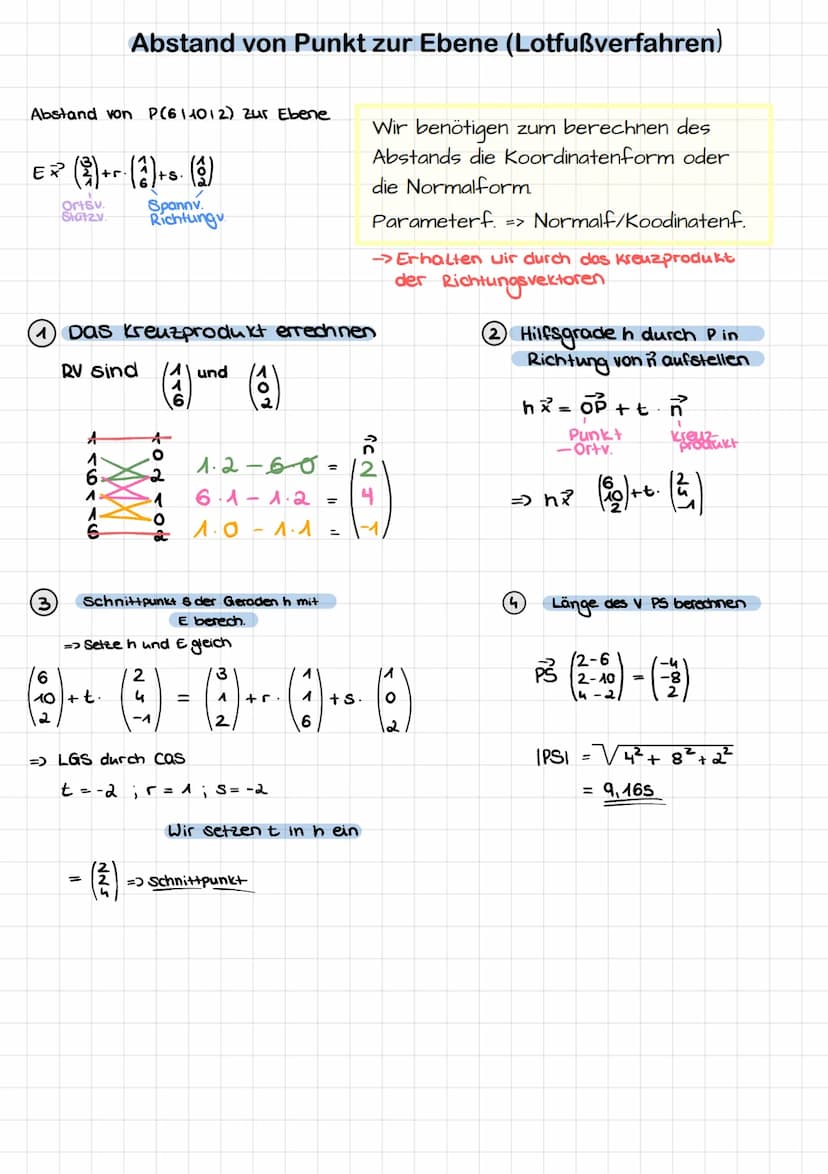 Abstand von Punkt zur Ebene (Lotfußverfahren)
Abstand von P(6|10|2) zur Ebene
E x⃗ (3 2 1) + r · (1 1 6) + s · (1 0 2)
Ortsv. Spannv.
Stützv. Richtungv.
Wir benötigen zum berechnen des
Abstands die Koordinatenform oder
die Normalform
Parameterf. => Normalf/Koodinatenf.
-> Erhalten wir durch das Kreuzprodukt
der Richtungsvektoren
① Das Kreuzprodukt errechnen
RV sind (1 1 6) und (1 0 2)
n⃗
1 1
1 0
6 2
1 1
1 0
6 2
1·2 - 6·0 = 2
6·1 - 1·2 = 4
1·0 - 1·1 = -1
② Hilfsgrade h durch P in
Richtung von n⃗ aufstellen
h x⃗ = OP⃗ + t · n⃗
Punkt Kreuz-
-Ortv. produkt
=> h x⃗ (6 10 2) + t · (2 4 -1)
③ Schnittpunkt S der Geraden h mit
E berech.
=> Setze h und E gleich
(6 10 2) + t · (2 4 -1) = (3 1 2) + r · (1 1 6) + s · (1 0 2)
=> LGS durch CAS
t = -2 ; r = 1 ; s = -2
Wir setzen t in h ein
= (2 2 4) => Schnittpunkt
④ Länge des V PS berechnen
PS⃗ (2-6 2-10 4-2) = (-4 -8 2)
|PS| = √4² + 8² + 2²
= 9,165